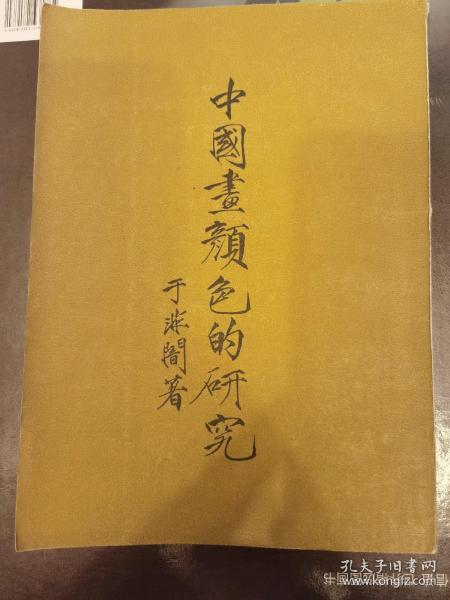 中國畫顏色的研究
于非闇著
孔夫子旧书网